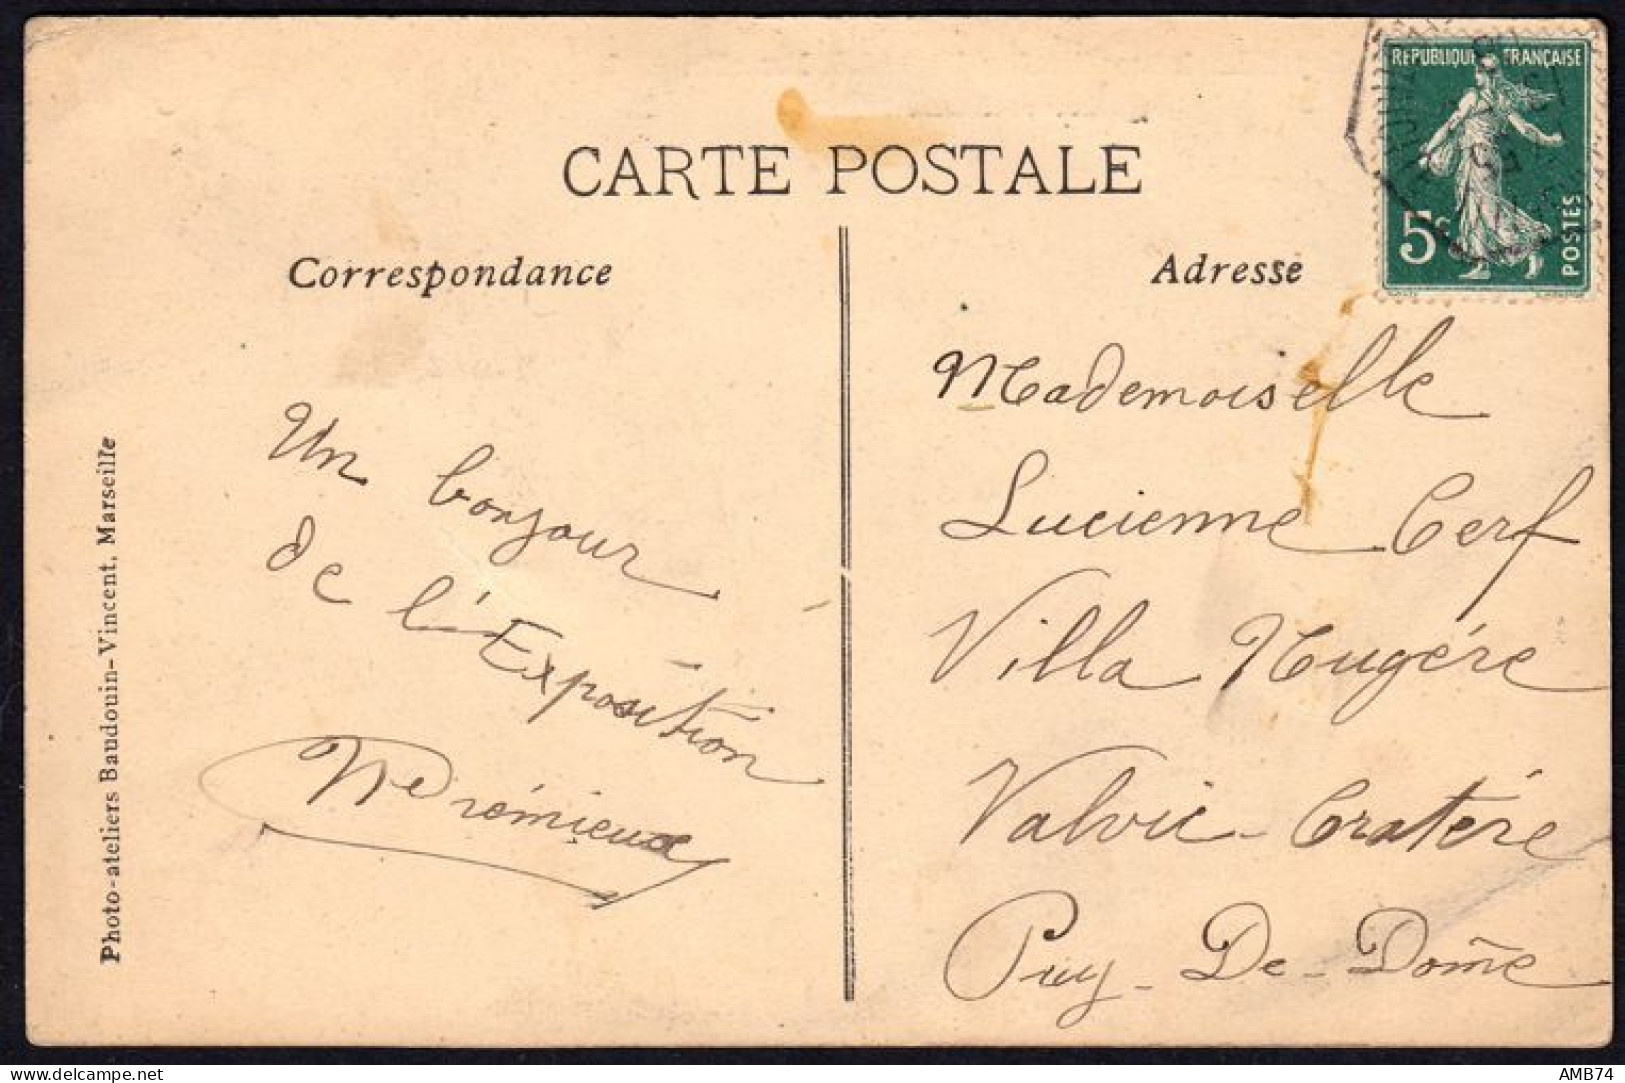 CARTE POSTALE
Correspondance
Adresse
REPUBLIQUE FRANÇAISE
5c
POSTES
Un bonjour
de l'Exposition
Mademoiselle
Lucienne Cerf
Villa Nugére
Valvic - Cratére
Puy - De - Dome
Photo-ateliers Baudouin-Vincent, Marseille
www.delcampe.net
AMB74